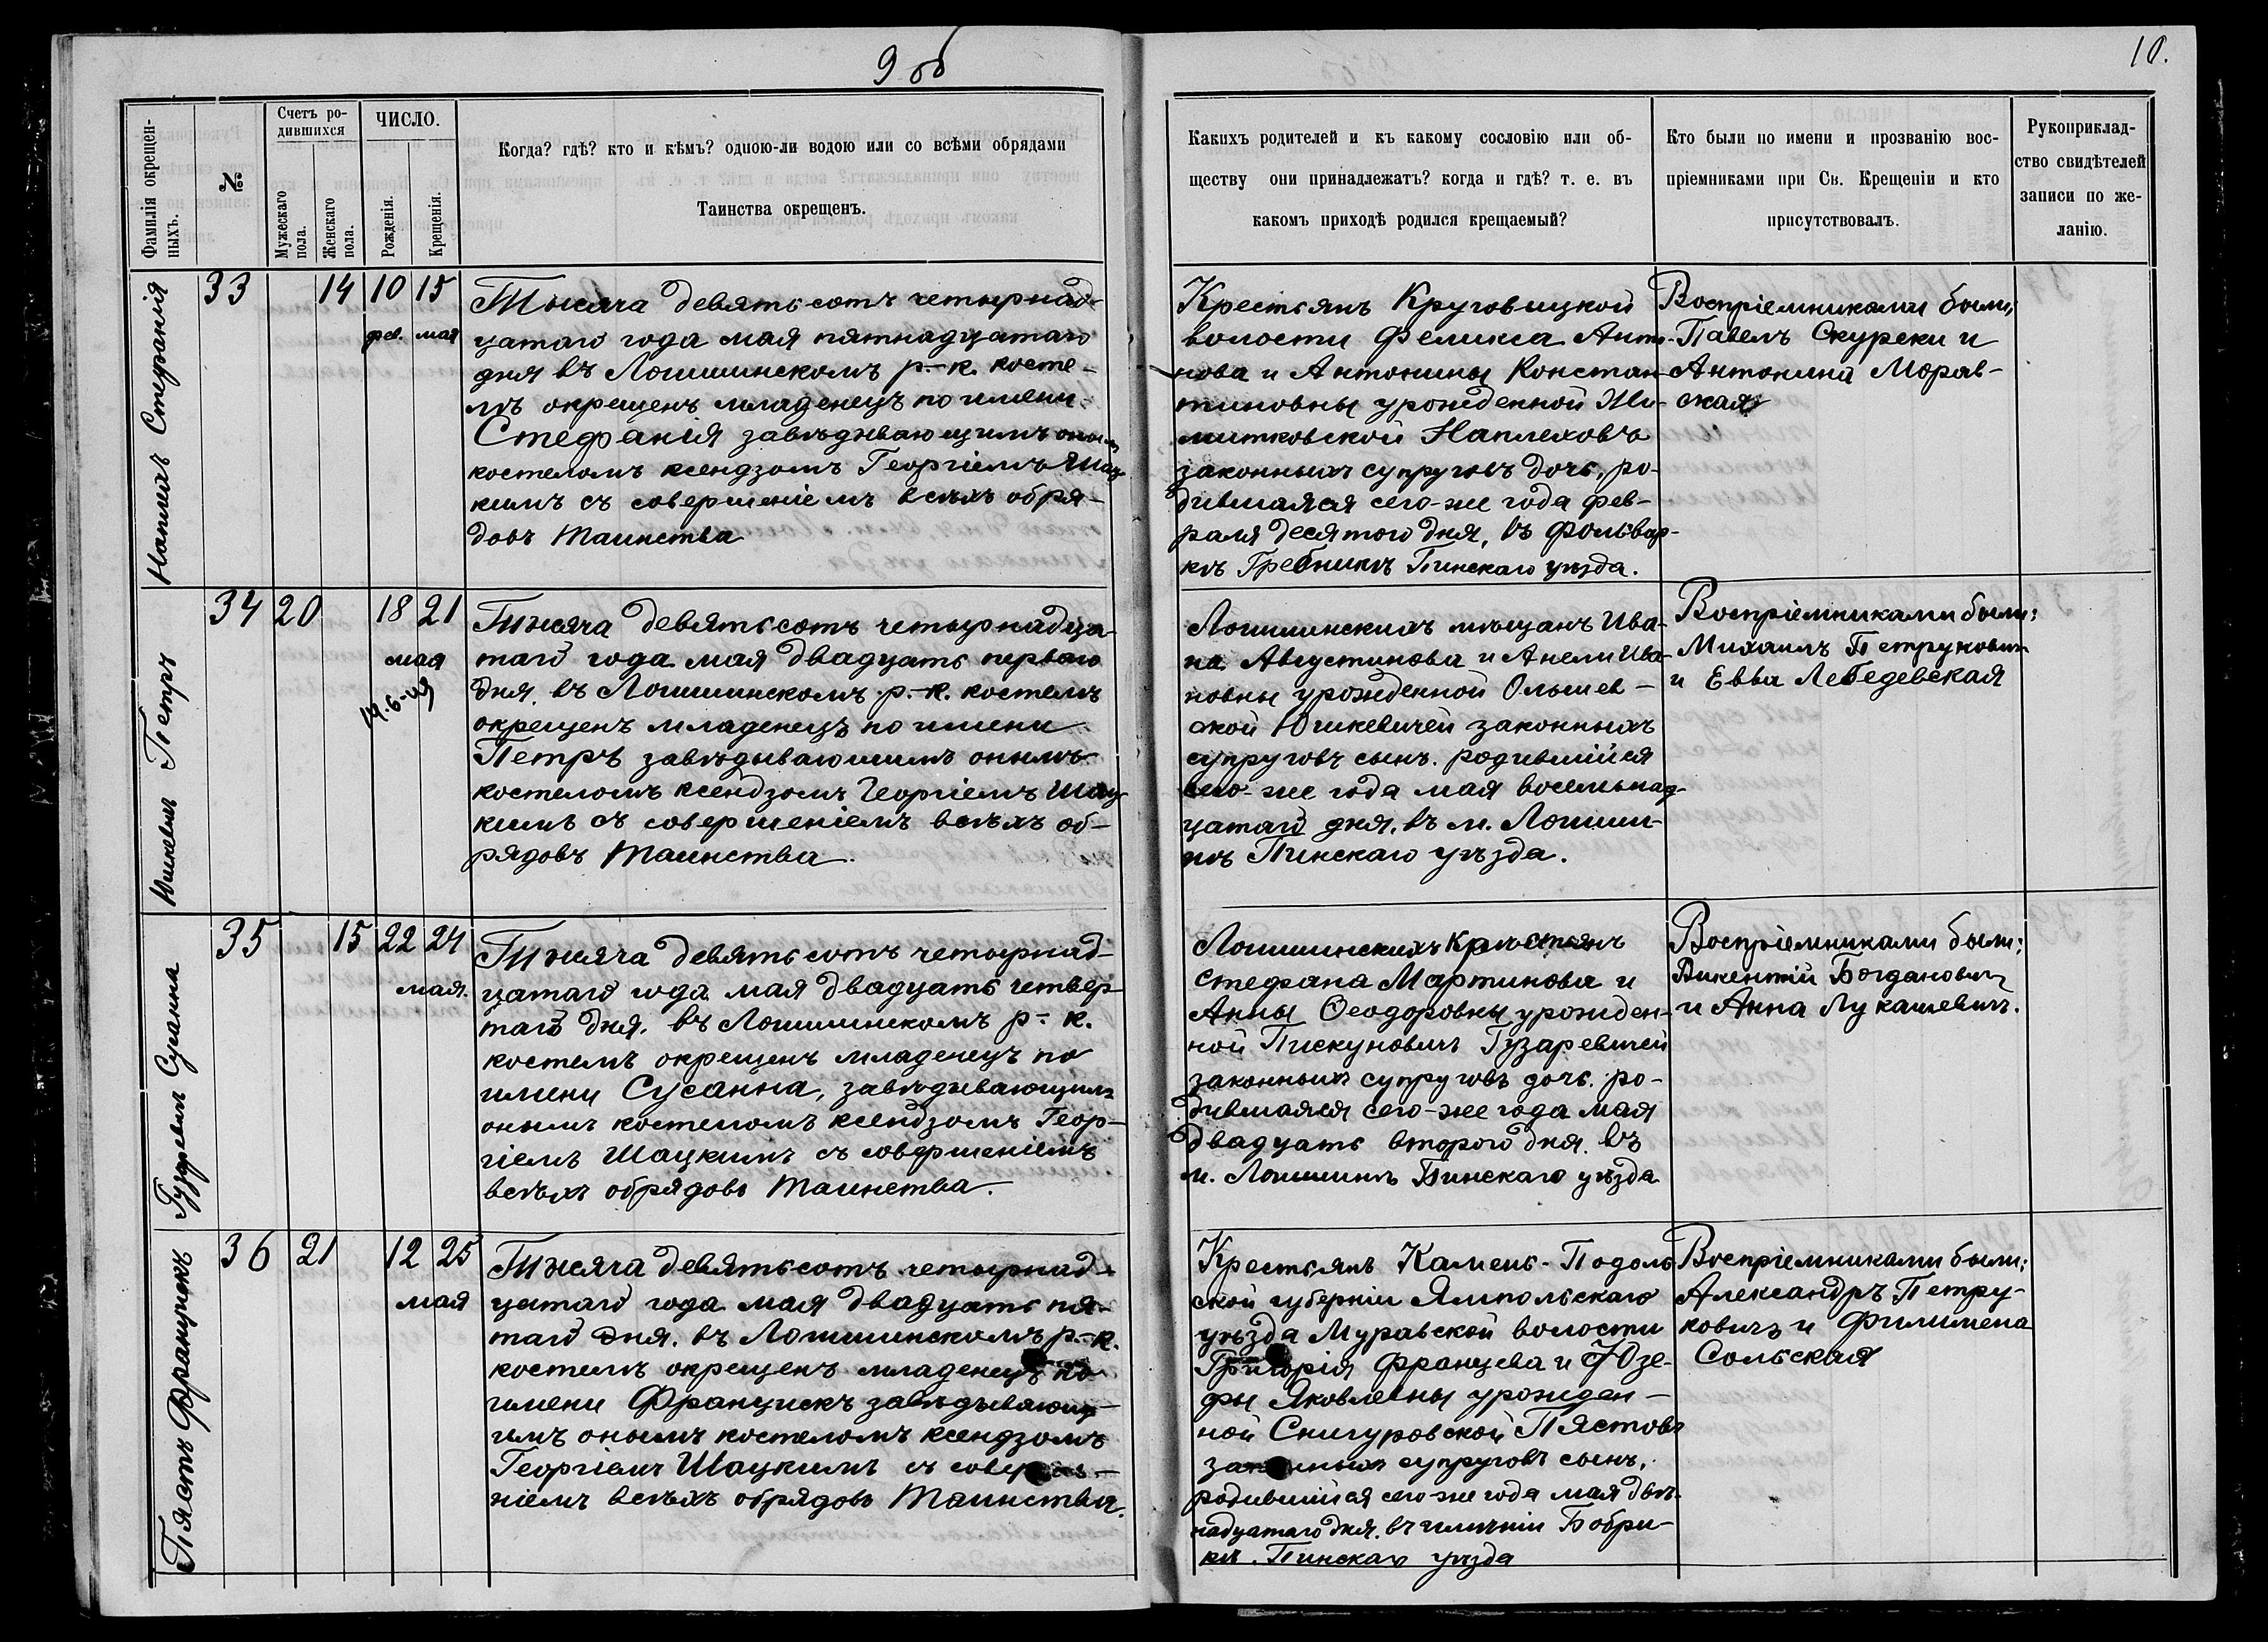 9 об
10.
Фамилія окрещен-
ныхъ.
№
Счетъ ро-
дившихся
Мужескаго
пола.
Женскаго
пола.
ЧИСЛО.
Рожденія.
Крещенія.
Когда? гдѣ? кто и кѣмъ? одною-ли водою или со всѣми обрядами
Таинства окрещенъ.
Какихъ родителей и къ какому сословію или об-
ществу они принадлежатъ? когда и гдѣ? т. е. въ
какомъ приходѣ родился крещаемый?
Кто были по имени и прозванію вос-
пріемниками при Св. Крещеніи и кто
присутствовалъ.
Рукоприклад-
ство свидѣтелей
записи по же-
ланію.
Наплехъ Стефанія
33
14
10
15
фев. мая
Тысяча девятьсотъ четырнад-
цатаго года мая пятнадцатаго
дня въ Логишинскомъ р.-к. косте-
лѣ окрещенъ младенецъ по имени
Стефанія завѣдывающимъ онымъ
костеломъ ксендзомъ Георгіемъ Шац
кимъ съ совершеніемъ всѣхъ обря-
довъ Таинства
Крестьянъ Круговицкой
волости Феликса Анто-
нова и Антонины Констан-
тиновны урожденной
Наплеховъ
законныхъ супруговъ дочь, ро-
дившаяся сего-же года фев-
раля десятого дня, въ фольвар-
кѣ Гребникъ Пинскаго уѣзда.
Воспріемниками были;
Павелъ Скуреки и
Антонина Морав-
ская
Юшкевичъ Петръ
34
20
18
21
мая
19.6-49
Тысяча девятьсотъ четырнадца-
таго года мая двадцать перваго
дня. въ Логишинскомъ р.-к. костелѣ
окрещенъ младенецъ по имени
Петръ завѣдывающимъ онымъ
костеломъ ксендзомъ Георгіемъ Шац
кимъ съ совершеніемъ всѣхъ об-
рядовъ Таинства.
Логишинскихъ мѣщанъ Ива-
на Августинова и Анели Ива-
новны урожденной Ольшев-
ской Юшкевичей законныхъ
супруговъ сынъ. родившійся
сего-же года мая восемьнад-
цатаго дня. въ м. Логиши-
нѣ Пинскаго уѣзда.
Воспріемниками были:
Михаилъ Петруковичъ
и Евва Лебедевская
Гузаревичъ Сусанна
35
15
22
24
мая.
Тысяча девятьсотъ четырнад-
цатаго года мая двадцать четвер-
таго дня. въ Логишинскомъ р-. к.
костелѣ окрещенъ младенецъ по
имени Сусанна, завѣдывающимъ
онымъ костеломъ ксендзомъ Геор-
гіемъ Шацкимъ съ совершеніемъ
всѣхъ обрядовъ Таинства.
Логишинскихъ крестьянъ
Стефана Мартинова и
Анны Ѳеодоровны урожден-
ной Пискуновичъ Гузаревичей
законныхъ супруговъ дочь. ро-
дившаяся сего-же года мая
двадцать второго дня. въ
м. Логишинѣ Пинскаго уѣзда
Воспріемниками были;
Викентій Богдановичъ
и Анна Лукашевичъ.
Пястъ Францискъ
36
21
12
25
мая
Тысяча девятьсотъ четырнад-
цатаго года мая двадцать пя-
таго дня. въ Логишинскомъ р.-к.
костелѣ окрещенъ младенецъ по
имени Францискъ завѣдывающ-
имъ онымъ костеломъ ксендзомъ
Георгіемъ Шацкимъ съ соверше-
ніемъ всѣхъ обрядовъ Таинства.
Крестьянъ Камень-Подоль
ской губерніи Ямпольскаго
уѣзда Муравской волости
Григорія Францева и Юзе-
фы Яковлевны урожден-
ной Снигуровской Пястовъ
законныхъ супруговъ сынъ,
родившійся сего же года мая двѣ-
надцатаго дня. въ имѣніи Бобри-
кѣ. Пинскаго уѣзда
Воспріемниками были;
Александръ Петру-
ковичъ и Филимена
Сольская